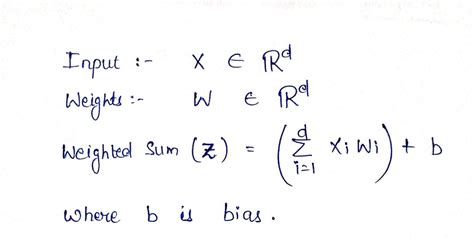 Input :- X ∈ ℝᵈ
Weights :- W ∈ ℝᵈ
Weighted Sum (Z) = (∑ᵢ₌₁ᵈ Xi Wi) + b
where b is bias.